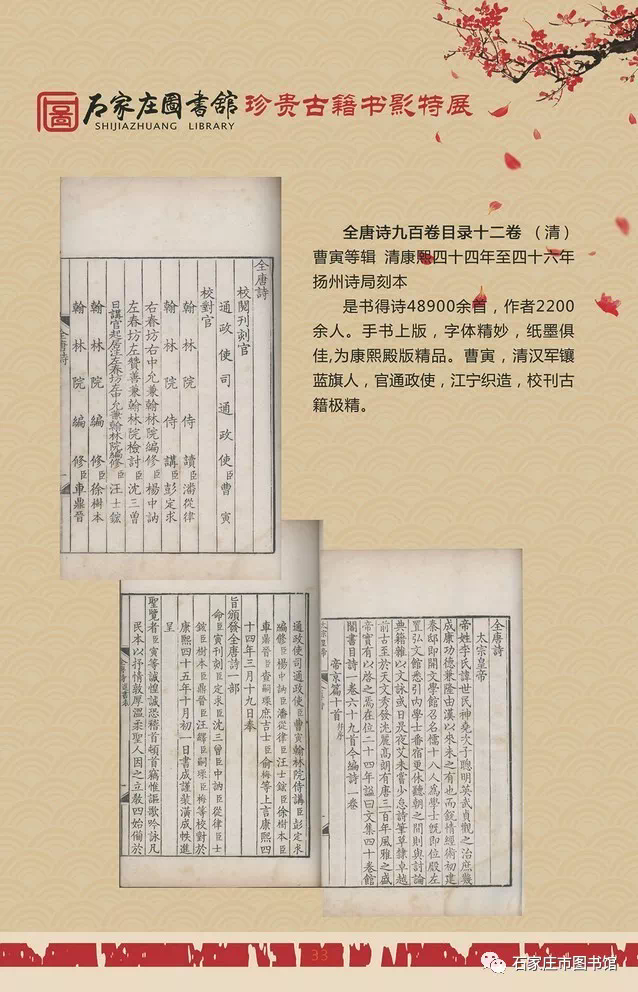 石家庄圖書舘 珍贵古籍书影特展
SHIJIAZHUANG LIBRARY
全唐诗九百卷目录十二卷 （清）
曹寅等辑 清康熙四十四年至四十六年
扬州诗局刻本
是书得诗48900余首，作者2200
余人。手书上版，字体精妙，纸墨俱
佳,为康熙殿版精品。曹寅，清汉军镶
蓝旗人，官通政使，江宁织造，校刊古
籍极精。
全唐詩
校閱刊刻官
通政使司通政使臣曹寅
校對官
翰林院侍讀臣潘從律
翰林院侍講臣彭定求
右春坊右中允兼翰林院編修臣楊中訥
左春坊左贊善兼翰林院檢討臣沈三曾
日講官起居注左春坊左中允兼翰林院編修臣汪士鋐
翰林院編修臣徐樹本
翰林院編修臣車鼎晉
通政使司通政使臣曹寅翰林院侍講臣彭定求
編修臣楊中訥臣潘從律臣汪士鋐臣徐樹本臣
車鼎晉臣查嗣瑮庶吉士臣俞梅等上言康熙四
十四年三月十九日奉
旨頒發全唐詩一部
命臣寅刊刻臣定求臣沈三曾臣中訥臣從律臣士
鋐臣樹本臣鼎晉臣汪繹臣嗣瑮臣梅等校對於
康熙四十五年十月初一日書成謹裝潢成帙進
呈
聖覽者臣寅等誠惶誠恐稽首頓首竊惟謳歌吟詠凡
民本以抒情敦厚溫柔聖人因之立敎四始備於
全唐詩
太宗皇帝
帝姓李氏諱世民神堯次子聰明英武貞觀之治庶幾
成康功德兼隆由漢以來未之有也而銳情經術初建
秦邸即開文學館召名儒十八人爲學士旣即位殿左
置弘文館悉引內學士番宿更休聽朝之間則與討論
典籍雜以文詠或日昃夜艾未嘗少怠詩筆草隸卓越
前古至於天文秀發沈麗高朗有唐三百年風雅之盛
帝實有以啓之焉在位二十四年諡曰文集四十卷館
閣書目詩一卷六十九首今編詩一卷
帝京篇十首 并序
33
石家庄市图书馆